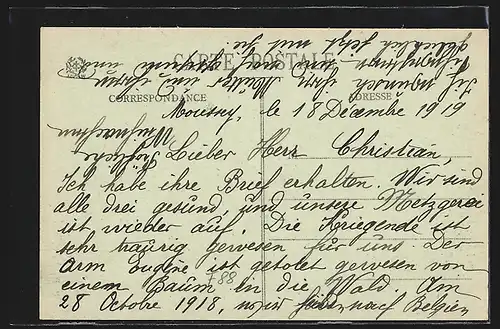 CARTE POSTALE
CORRESPONDANCE
ADRESSE
Moussey, le 18 Decembre 1919
Lieber Herr Christian,
Ich habe ihre Brief erhalten. Wir sind
alle drei gesund, und unsere Metzgerei
ist wieder auf. Die Kriegende ist
sehr traurig gewesen für uns Der
arm Eugene ist getotet gewesen von
einem Baum in die Wald. Am
28 Octobre 1918, wo wir nach Belgien
288
Ich wunsch Ihre Mutter und ihnen
Weihnachten und
glücklich jetzt mit Sie